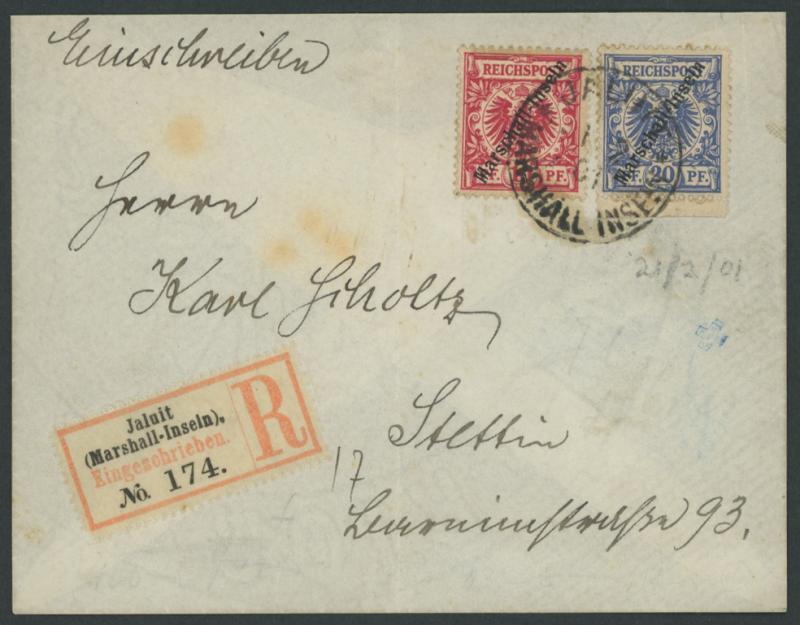 Einschreiben
REICHSPOST
Marschall-Inseln
PF. PF.
REICHSPOST
Marschall-Inseln
PF. 20 PF.
MARSHALL INSELN
Herrn
21/2/01
Karl Scholtz
Jaluit
(Marshall-Inseln).
Eingeschrieben.
No. 174.
R
Stettin
17
Barnimstraße 93.